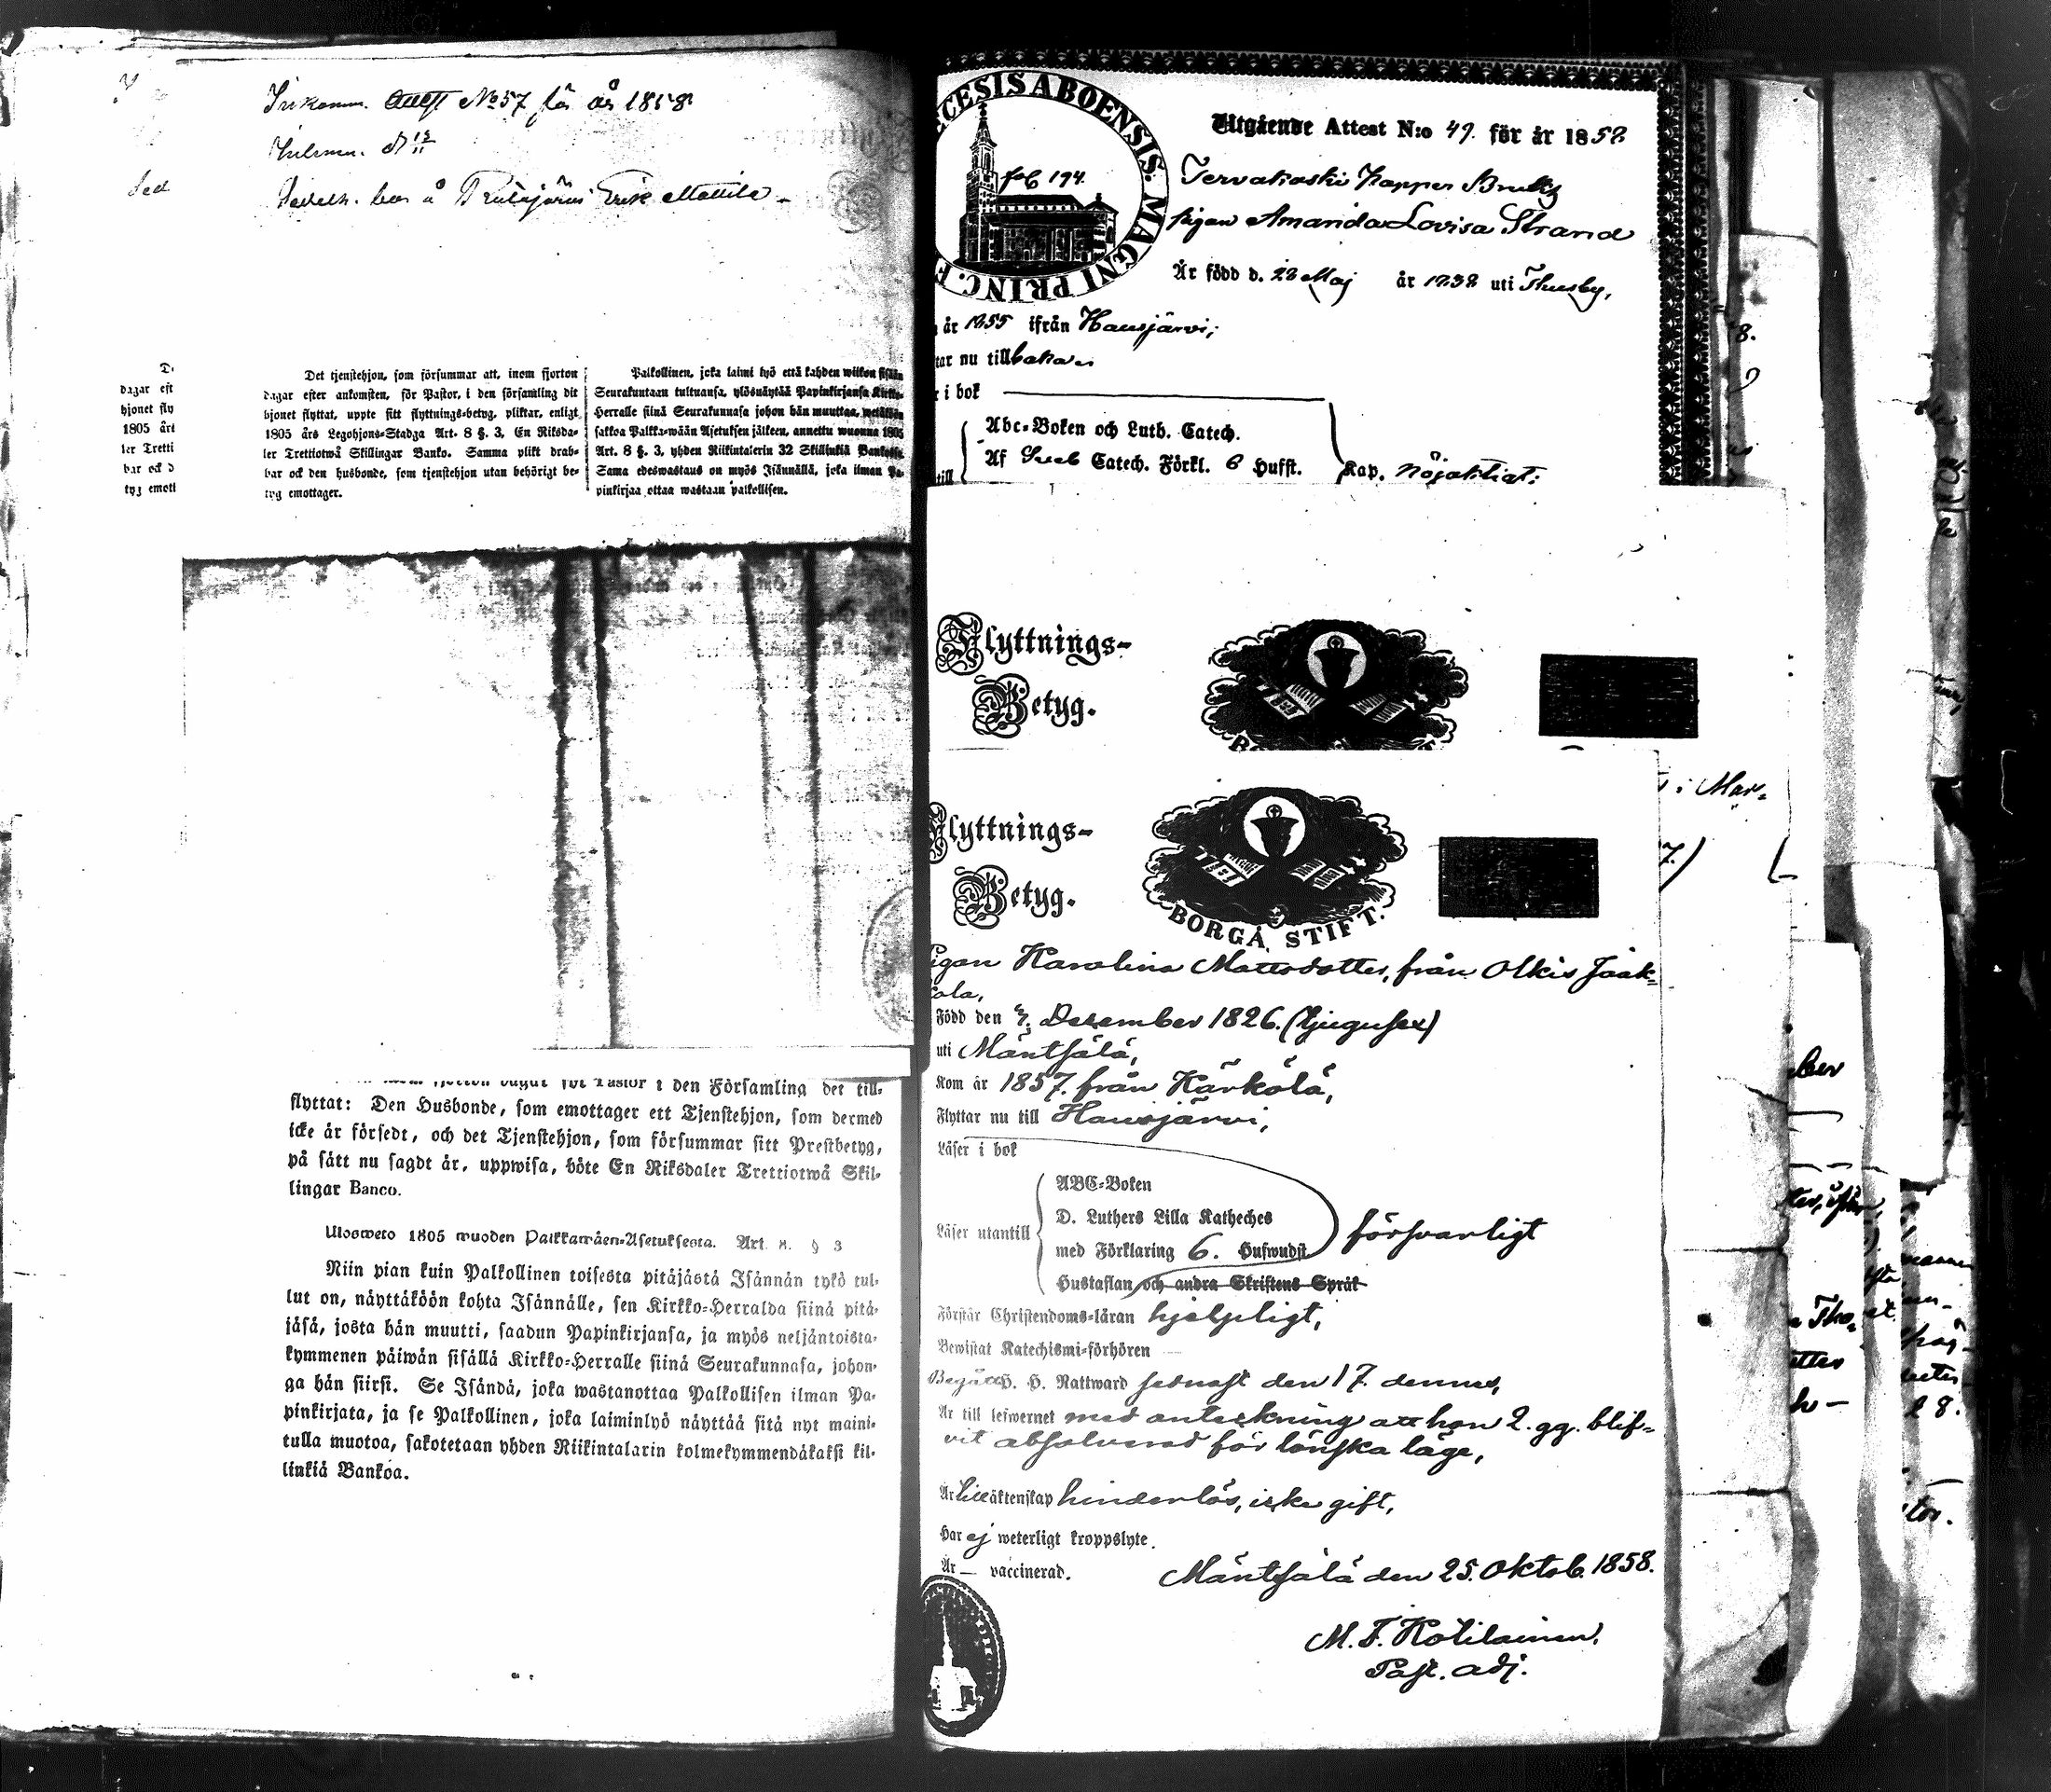 Inkomm. Attest No 57 för år 1858
Sedeln. hos å Erik Mattila
Det tjenstehjon, som försummar att, inom fjorton
dagar efter ankomsten, för Pastor, i den församling dit
hjonet flyttat, uppte sitt flyttnings-betyg, pliktar, enligt
1805 års Legohjons-Stadga Art. 8 §. 3, En Riksda-
ler Trettiotwå Skillingar Banko. Samma plikt drab-
bar ock den husbonde, som tjenstehjon utan behörigt be-
tyg emottager.
Palkollinen, joka laimi lyö että kahden wiikon sisään
Seurakuntaan tultuansa, ylösnäytää Papinkirjansa Kirkko-
Herralle siinä Seurakunnasa johon hän muuttaa, wetäkään
sakkoa Palkka-wään Asetuksen jälkeen, annettu wuonna 1805
Art. 8 §. 3, yhden Riikintalerin 32 Skillinkiä Bankossa.
Sama edeswastaus on myös Isännällä, joka ilman Pa-
pinkirjaa ottaa wastaan palkollisen.
dagar eft
hjonet fly
1805 års
ler Tretti
bar ock d
tyg emott
Pastor i den Församling det till-
flyttat: Den Husbonde, som emottager ett Tjenstehjon, som dermed
icke är försedt, och det Tjenstehjon, som försummar sitt Prestbetyg,
på sätt nu sagdt är, uppwisa, böte En Riksdaler Trettiotwå Skil-
lingar Banco.
Ulosweto 1805 wuoden Palkkawäen-Asetuksesta. Art. 8. § 3
Niin pian kuin Palkollinen toisesta pitäjästä Isännän tykö tul-
lut on, näyttäköön kohta Isännälle, sen Kirkko-Herralda siinä pitä-
jäsä, josta hän muutti, saadun Papinkirjansa, ja myös neljäntoista-
kymmenen päiwän sisällä Kirkko-Herralle siinä Seurakunnasa, johon-
ga hän siirsi. Se Isändä, joka wastanottaa Palkollisen ilman Pa-
pinkirjata, ja se Palkollinen, joka laiminlyö näyttää sitä nyt maini-
tulla muotoa, sakotetaan yhden Riikintalarin kolmekymmendäkaksi kil-
linkiä Bankoa.
CESIS ABOENSIS. MAGNI PRINC. F
fol 194.
Utgående Attest N:o 49. för år 1858
Tervakoski Papper Bruks
pigan Amanda Lovisa Strand
Är född d. 28 Maj år 1838 uti Thusby,
år 1855 ifrån Hausjärvi;
tar nu till baka
i bok
Abc-Boken och Luth. Catech.
Af Sveb Catech. Förkl. 6 Hufst.
Kap. nöjaktigt;
Flyttnings-
Betyg.
i Mar-
Flyttnings-
Betyg.
BORGÅ STIFT.
Pigan Karolina Mattsdotter, från Olkis Jaak-
kola,
Född den 3. December 1826. (tjugusex)
uti Mäntsälä,
Kom år 1857. från Kärkölä,
Flyttar nu till Hausjärvi,
Läser i bok
Läser utantill
ABC-Boken
D. Luthers Lilla Katheches
med Förklaring 6. Hufwudst
Hustaflan och andra Skriftens Språk
försvarligt
Förstår Christendoms-läran hjelpligt,
Bewistat Katechismi-förhören —
Begått H. H. Nattward sednast den 17. dennes,
Är till lefwernet med anteckning att hon 2. gg. blif-
vit absolverad för lönska läge,
Är till äktenskap hinderlös, icke gift,
Har ej weterligt kroppslyte.
Är — vaccinerad.
Mäntsälä den 25. Oktob. 1858.
M. F. Kotilainen,
Past. adj.